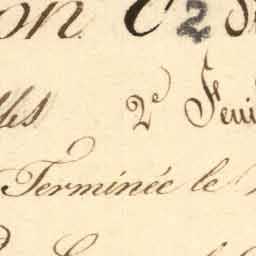 on C 2
lles 2e Feui
Terminée le